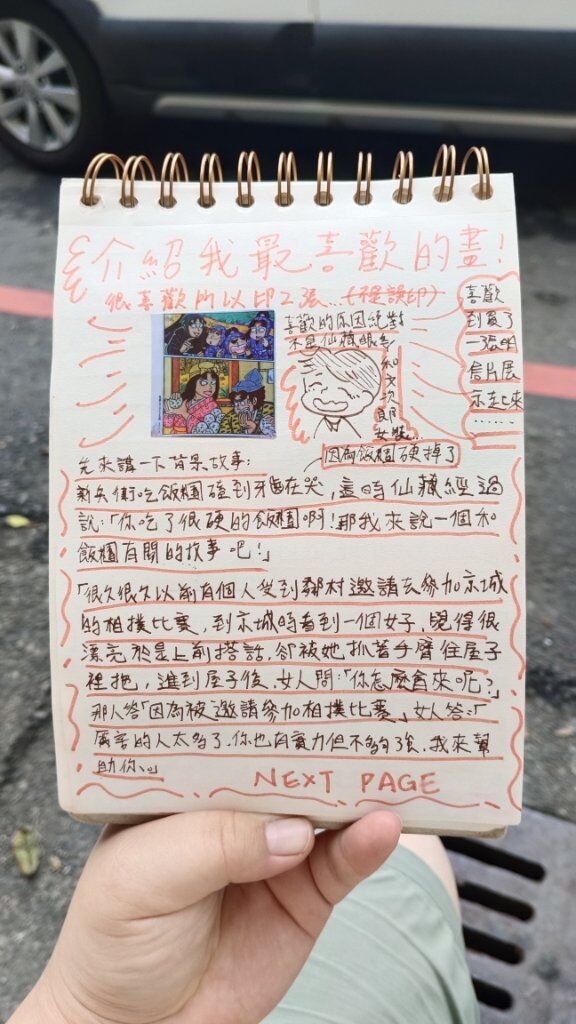 介紹我最喜歡的畫!
很喜歡所以印2張...(不是誤印)
喜歡的原因絕對
不是仙藏眼影
和文次郎女裝...
喜歡
到買了
一張明
信片展
示起來
......
因為飯糰硬掉了
先來講一下背景故事:
新兵衛吃飯糰碰到牙齒在哭,這時仙藏經過
說:「你吃了很硬的飯糰啊!那我來說一個和
飯糰有關的故事吧!」
「很久很久以前有個人受到鄰村邀請去參加京城
的相撲比賽,到京城時看到一個女子,覺得很
漂亮於是上前搭話,卻被她抓著手臂往屋子
裡拖,進到屋子後,女人問:「你怎麼會來呢?」
那人答「因為被邀請參加相撲比賽」,女人答:「
厲害的人太多了,你也有實力但不夠強,我來幫
助你。」
NEXT PAGE